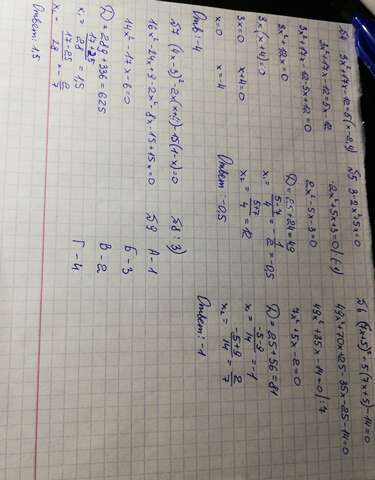 №4 3x²+17x-12=5(x-2,4)
3x²+17x-12=5x-12
3x²+17x-12-5x+12=0
3x²+12x=0
3x(x+4)=0
3x=0 x+4=0
x=0 x=-4
Отв: -4
№5 3-2x²+5x=0
-2x²+5x+3=0 |·(-1)
2x²-5x-3=0
D=25+24=49
x₁= 5-7/4 = -1/2 =-0,5
x₂= 5+7/4 = 12
Ответ -0,5
№6 (7x+5)²-5(7x+5)-14=0
49x²+70x+25-35x-25-14=0
49x²+35x-14=0 |:7
7x²+5x-2=0
D=25+56=81
x₁= -5-9/14 = -1
x₂= -5+9/14 = 2/7
Ответ: -1
№7 (4x-3)²-2x(x+4)-15(1-x)=0
16x²-24x+9-2x²-8x-15+15x=0
14x²-17x-6=0
D=289+336=625
x₁= 17+25/28 = 1,5
x₂= 17-25/28 = -2/7
Ответ: 1,5
№8: 3)
№9 А-1
Б-3
В-2
Г-4